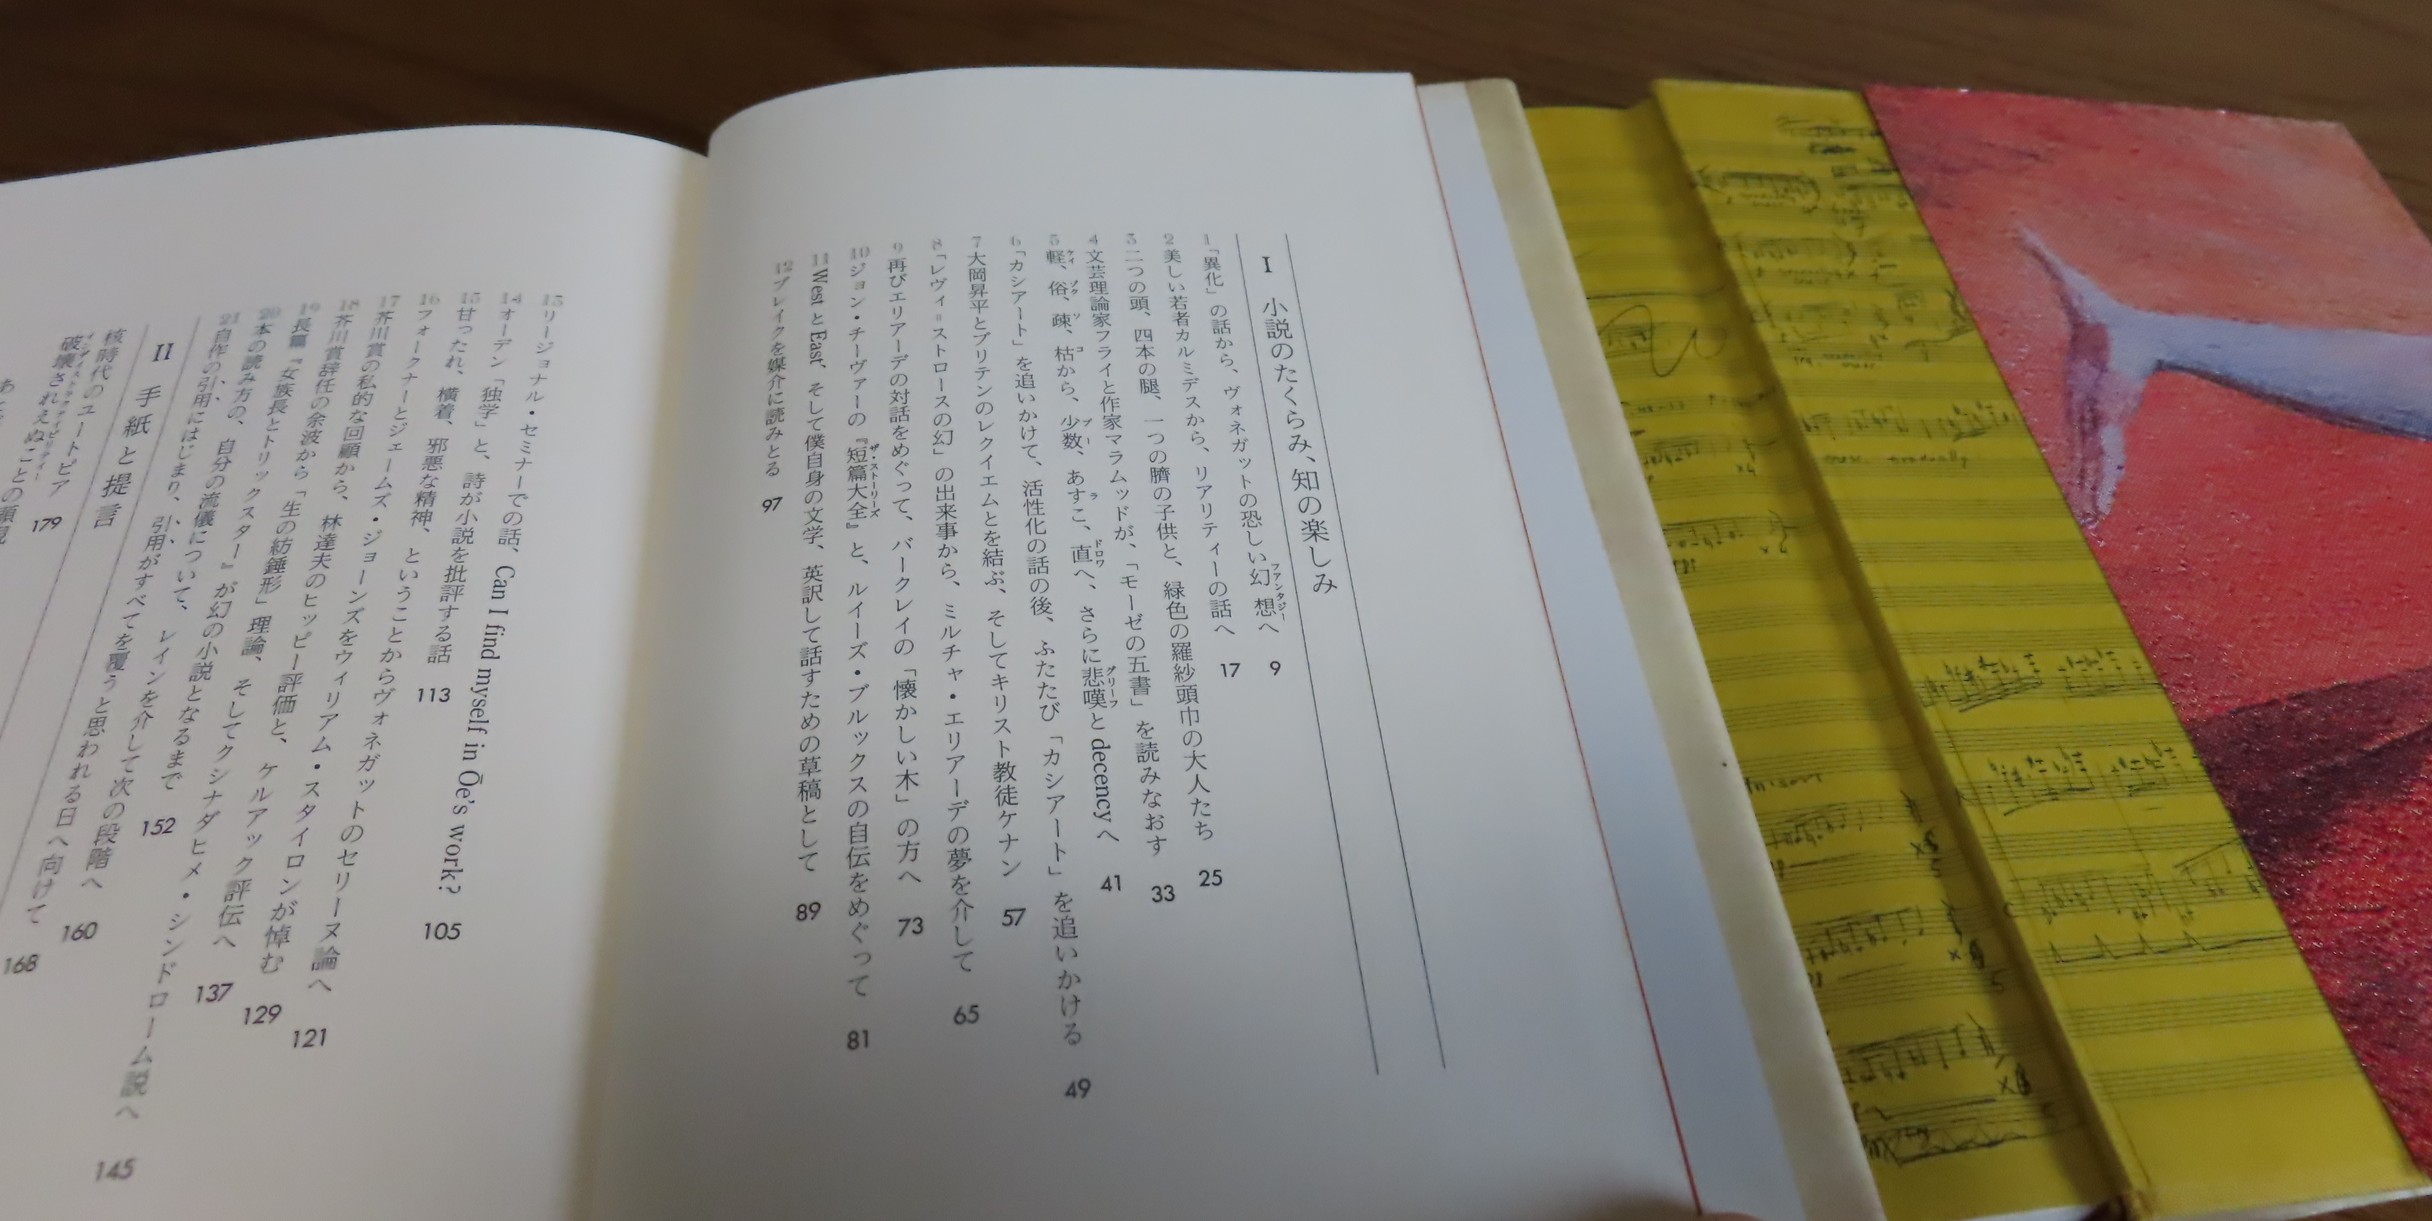 I 小説のたくらみ、知の楽しみ
1 「異化」の話から、ヴォネガットの恐しい幻想へ 9
2 美しい若者カルミデスから、リアリティーの話へ 17
3 二つの頭、四本の腿、一つの臍の子供と、緑色の羅紗頭巾の大人たち 25
4 文芸理論家フライと作家マラムッドが、「モーゼの五書」を読みなおす 33
5 軽、俗、疎、枯から、少数、あすこ、直へ、さらに悲嘆とdecencyへ 41
6 「カシアート」を追いかけて、活性化の話の後、ふたたび「カシアート」を追いかける 49
7 大岡昇平とブリテンのレクイエムとを結ぶ、そしてキリスト教徒ケナン 57
8 「レヴィ=ストロースの幻」の出来事から、ミルチャ・エリアーデの夢を介して 65
9 再びエリアーデの対話をめぐって、バークレイの「懐かしい木」の方へ 73
10 ジョン・チーヴァーの『短篇大全』と、ルイーズ・ブルックスの自伝をめぐって 81
11 WestとEast、そして僕自身の文学、英訳して話すための草稿として 89
12 ブレイクを媒介に読みとる 97
13 リージョナル・セミナーでの話、Can I find myself in Ōe's work? 105
14 オーデン「独学」と、詩が小説を批評する話 113
15 甘ったれ、横着、邪悪な精神、ということからヴォネガットのセリーヌ論へ 121
16 フォークナーとジェームズ・ジョーンズをウィリアム・スタイロンが悼む 129
17 芥川賞の私的な回顧から、林達夫のヒッピー評価と、ケルアック評伝へ 137
18 芥川賞辞任の余波から「生の紡錘形」理論、そしてクシナダヒメ・シンドローム説へ 145
19 長篇『女族長とトリックスター』が幻の小説となるまで 152
20 本の読み方の、自分の流儀について、レインを介して次の段階へ 160
21 自作の引用にはじまり、引用がすべてを覆うと思われる日へ向けて 168
II 手紙と提言
核時代のユートピア 179
破壊されえぬことの顕現